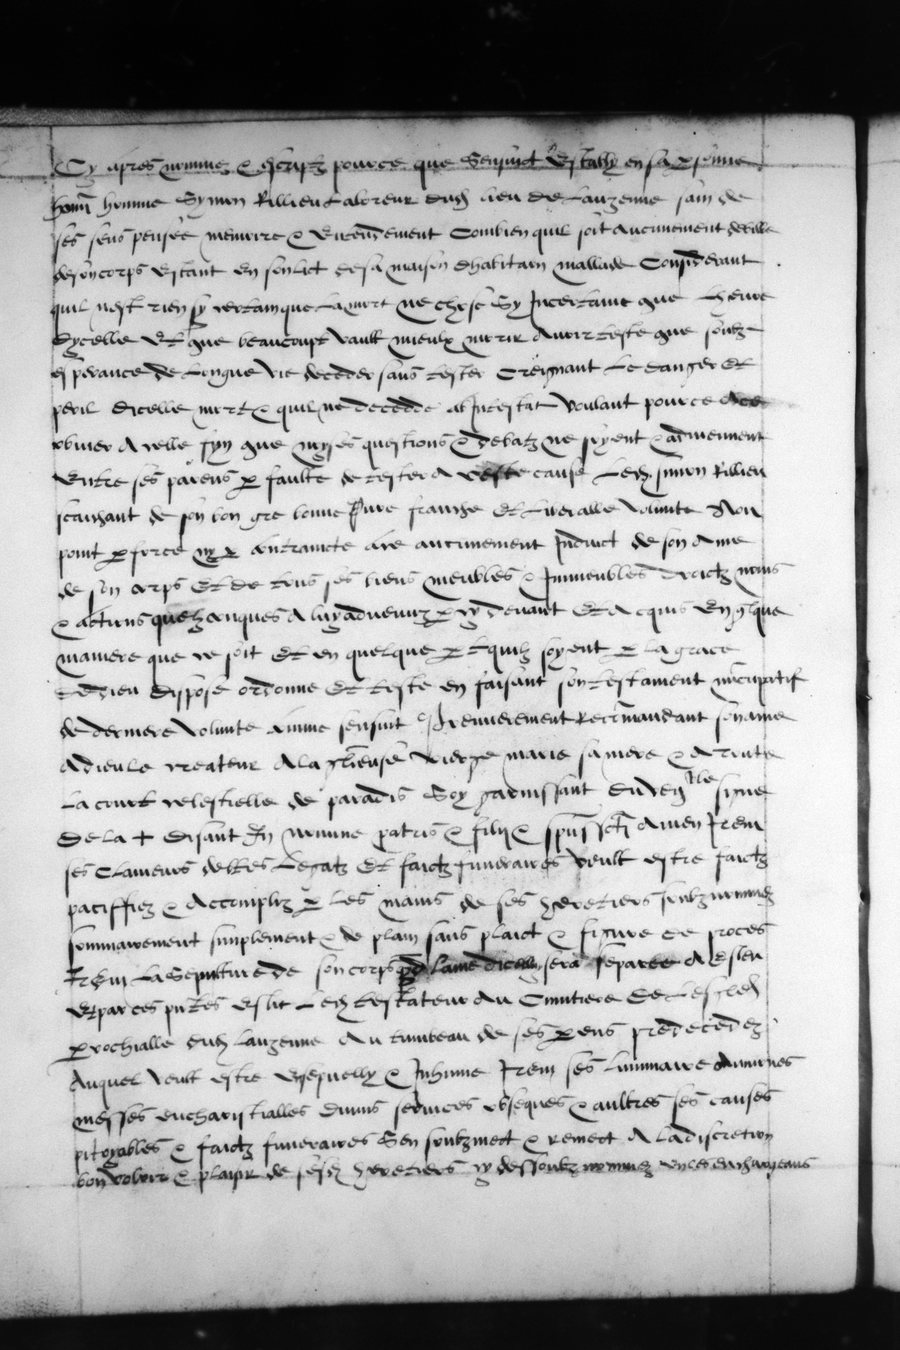 Cy apres nommez & escriptz pource que Sensuict Estably en sa personne
honn homme Symon Rillieu Laboreur dudi lieu de Lauzenne sain de
ses sens pensee memoire & Entendement Combien quil soit aucunement debille
de son corps estant En son lict de sa maison dhabitaon mallade Considerant
quil nest rien sy certain que La mort ne chose Sy Incertaine que Lheure
dycelle Et que beaucoupt vault mieulx morir Avoir teste que soubz
esperance de Longue vie deceder sans tester Creignant Le danger Et
peril dicelle mort & quil ne decedde ab Intestat voulant pource
obvier A celle fin que nopses questions & debatz ne soyent & adviennent
Entre ses parens p faulte de tester A ceste cause Ledi Simon Rillieu
scaichant de son bon gre bonne Pure franche Et Liveralle volunte Non
point p force ny p contraincte aie aucunement Induict de son Ame
de son corps Et de tous ses biens meubles & Immeubles droictz noms
& actions quelzconques A luy advenuz p cy devant Et Acquis En qlque
maniere que ce soit Et en quelque p t quilz soyent p La grace
de dieu dispose ordonne Et teste en faisant son testament nuncupatif
de derniere volunte comme sensuit Premierement Recomandant son ame
A dieu Le createur A la glieuse vierge marie sa mere & A toute
La court celestielle de paradis Soy garnissant du veng ble signe
De la + disant In nomine patris & filij & spus scti Amen Item
ses Clameurs debtes Legatz Et faictz funeraires veult estre faictz
paciffiez & Accompliz p Les mains de ses heretiers soubznommez
sommairement simplement & de plain sans plaict & figure de proces
Item La Sepulture de son corps qd Lame dicelluy sera separee A Esleu
Et par ces pntes Eslit Ledi testateur Au Cimitiere de Lesglese
parochialle dudi Lauzenne Au tumbeau de ses p ens predecedez
Auquel veult estre Ensepuelly & Inhume Item ses luminaire aumosnes
messes eucharistialles divins services obseques & aultres ses causes
pitoyables & faictz funeraires Sen soubzmect & remect A la discretion
bon voloir & plaisir de sesdi heretiers cy dessoubz nommez en les enchargeans